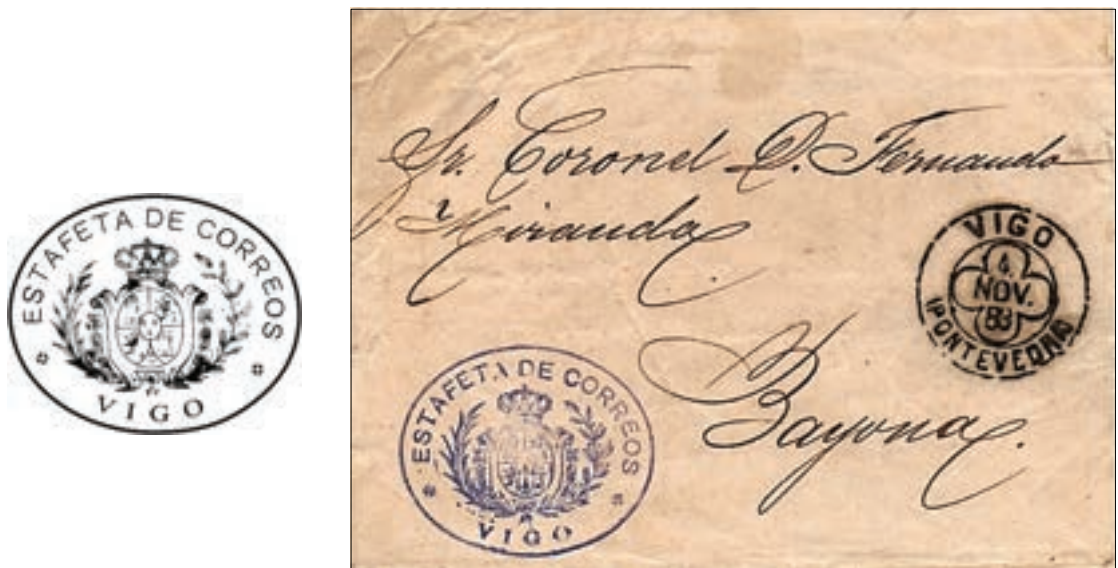 ESTAFETA DE CORREOS
VIGO
Sr. Coronel D. Fernando
Miranda
Bayona.
VIGO
4.
NOV.
83
(PONTEVEDRA)
ESTAFETA DE CORREOS
VIGO